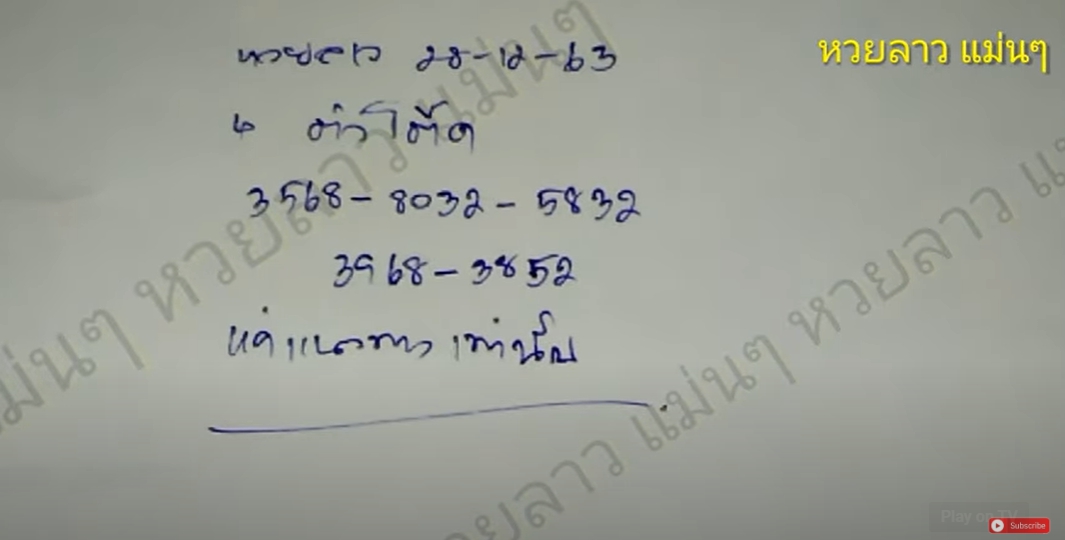 หวยลาว แม่นๆ
หวยลาว 28-12-63
4 ตัวโต๊ด
3568 - 8032 - 5832
3968 - 3852
แค่แนวทางเท่านั้น
หวยลาว แม่นๆ
หวยลาว แม่นๆ
หวยลาว แม่นๆ
Play on TV
Subscribe